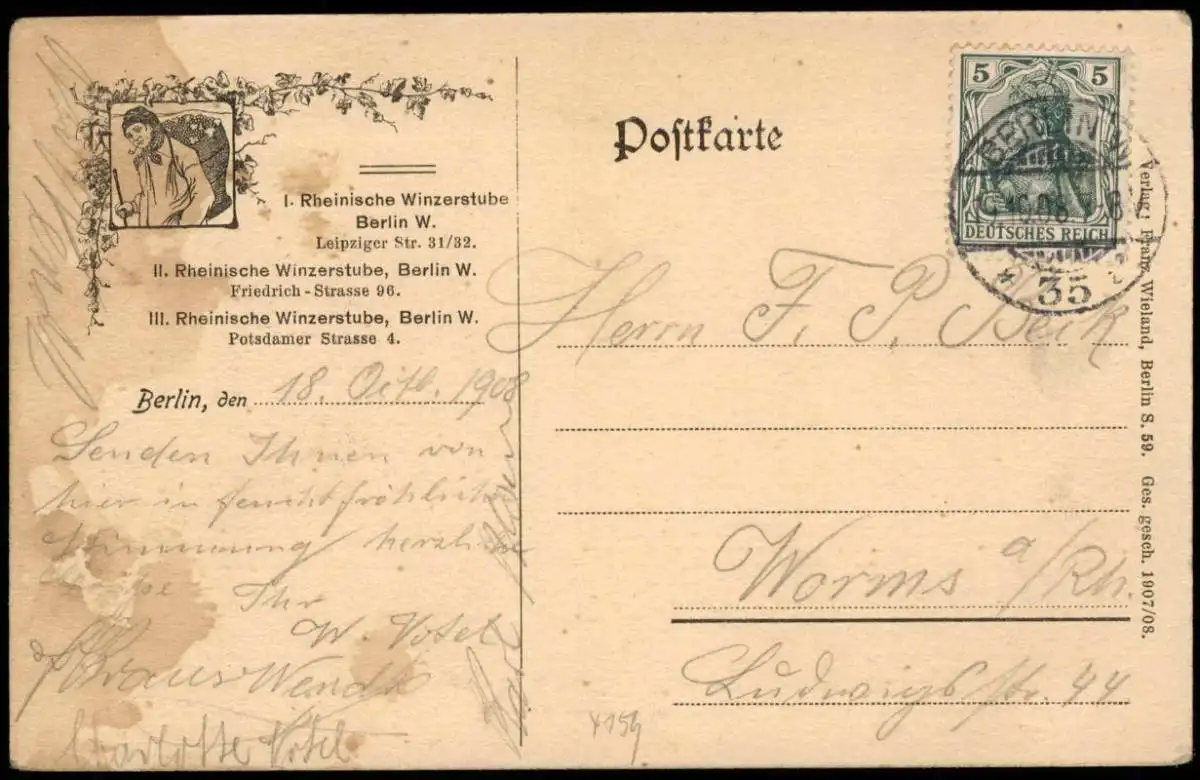 I. Rheinische Winzerstube
Berlin W.
Leipziger Str. 31/32.
II. Rheinische Winzerstube, Berlin W.
Friedrich-Strasse 96.
III. Rheinische Winzerstube, Berlin W.
Potsdamer Strasse 4.
Berlin, den 18. Octb. 1908
Senden Ihnen von
hier in feuchtfröhlicher
Stimmung herzliche
Ihr
W. Votel
Wende
Charlotte Votel
Karl
Postkarte
5 5
DEUTSCHES REICH
BERLIN W
10.08
* 35
Herrn F. P. Beck
Worms a/Rh.
Ludwigsstr. 44
4159
Verlag: Franz Wieland, Berlin S. 59. Ges. gesch. 1907/08.